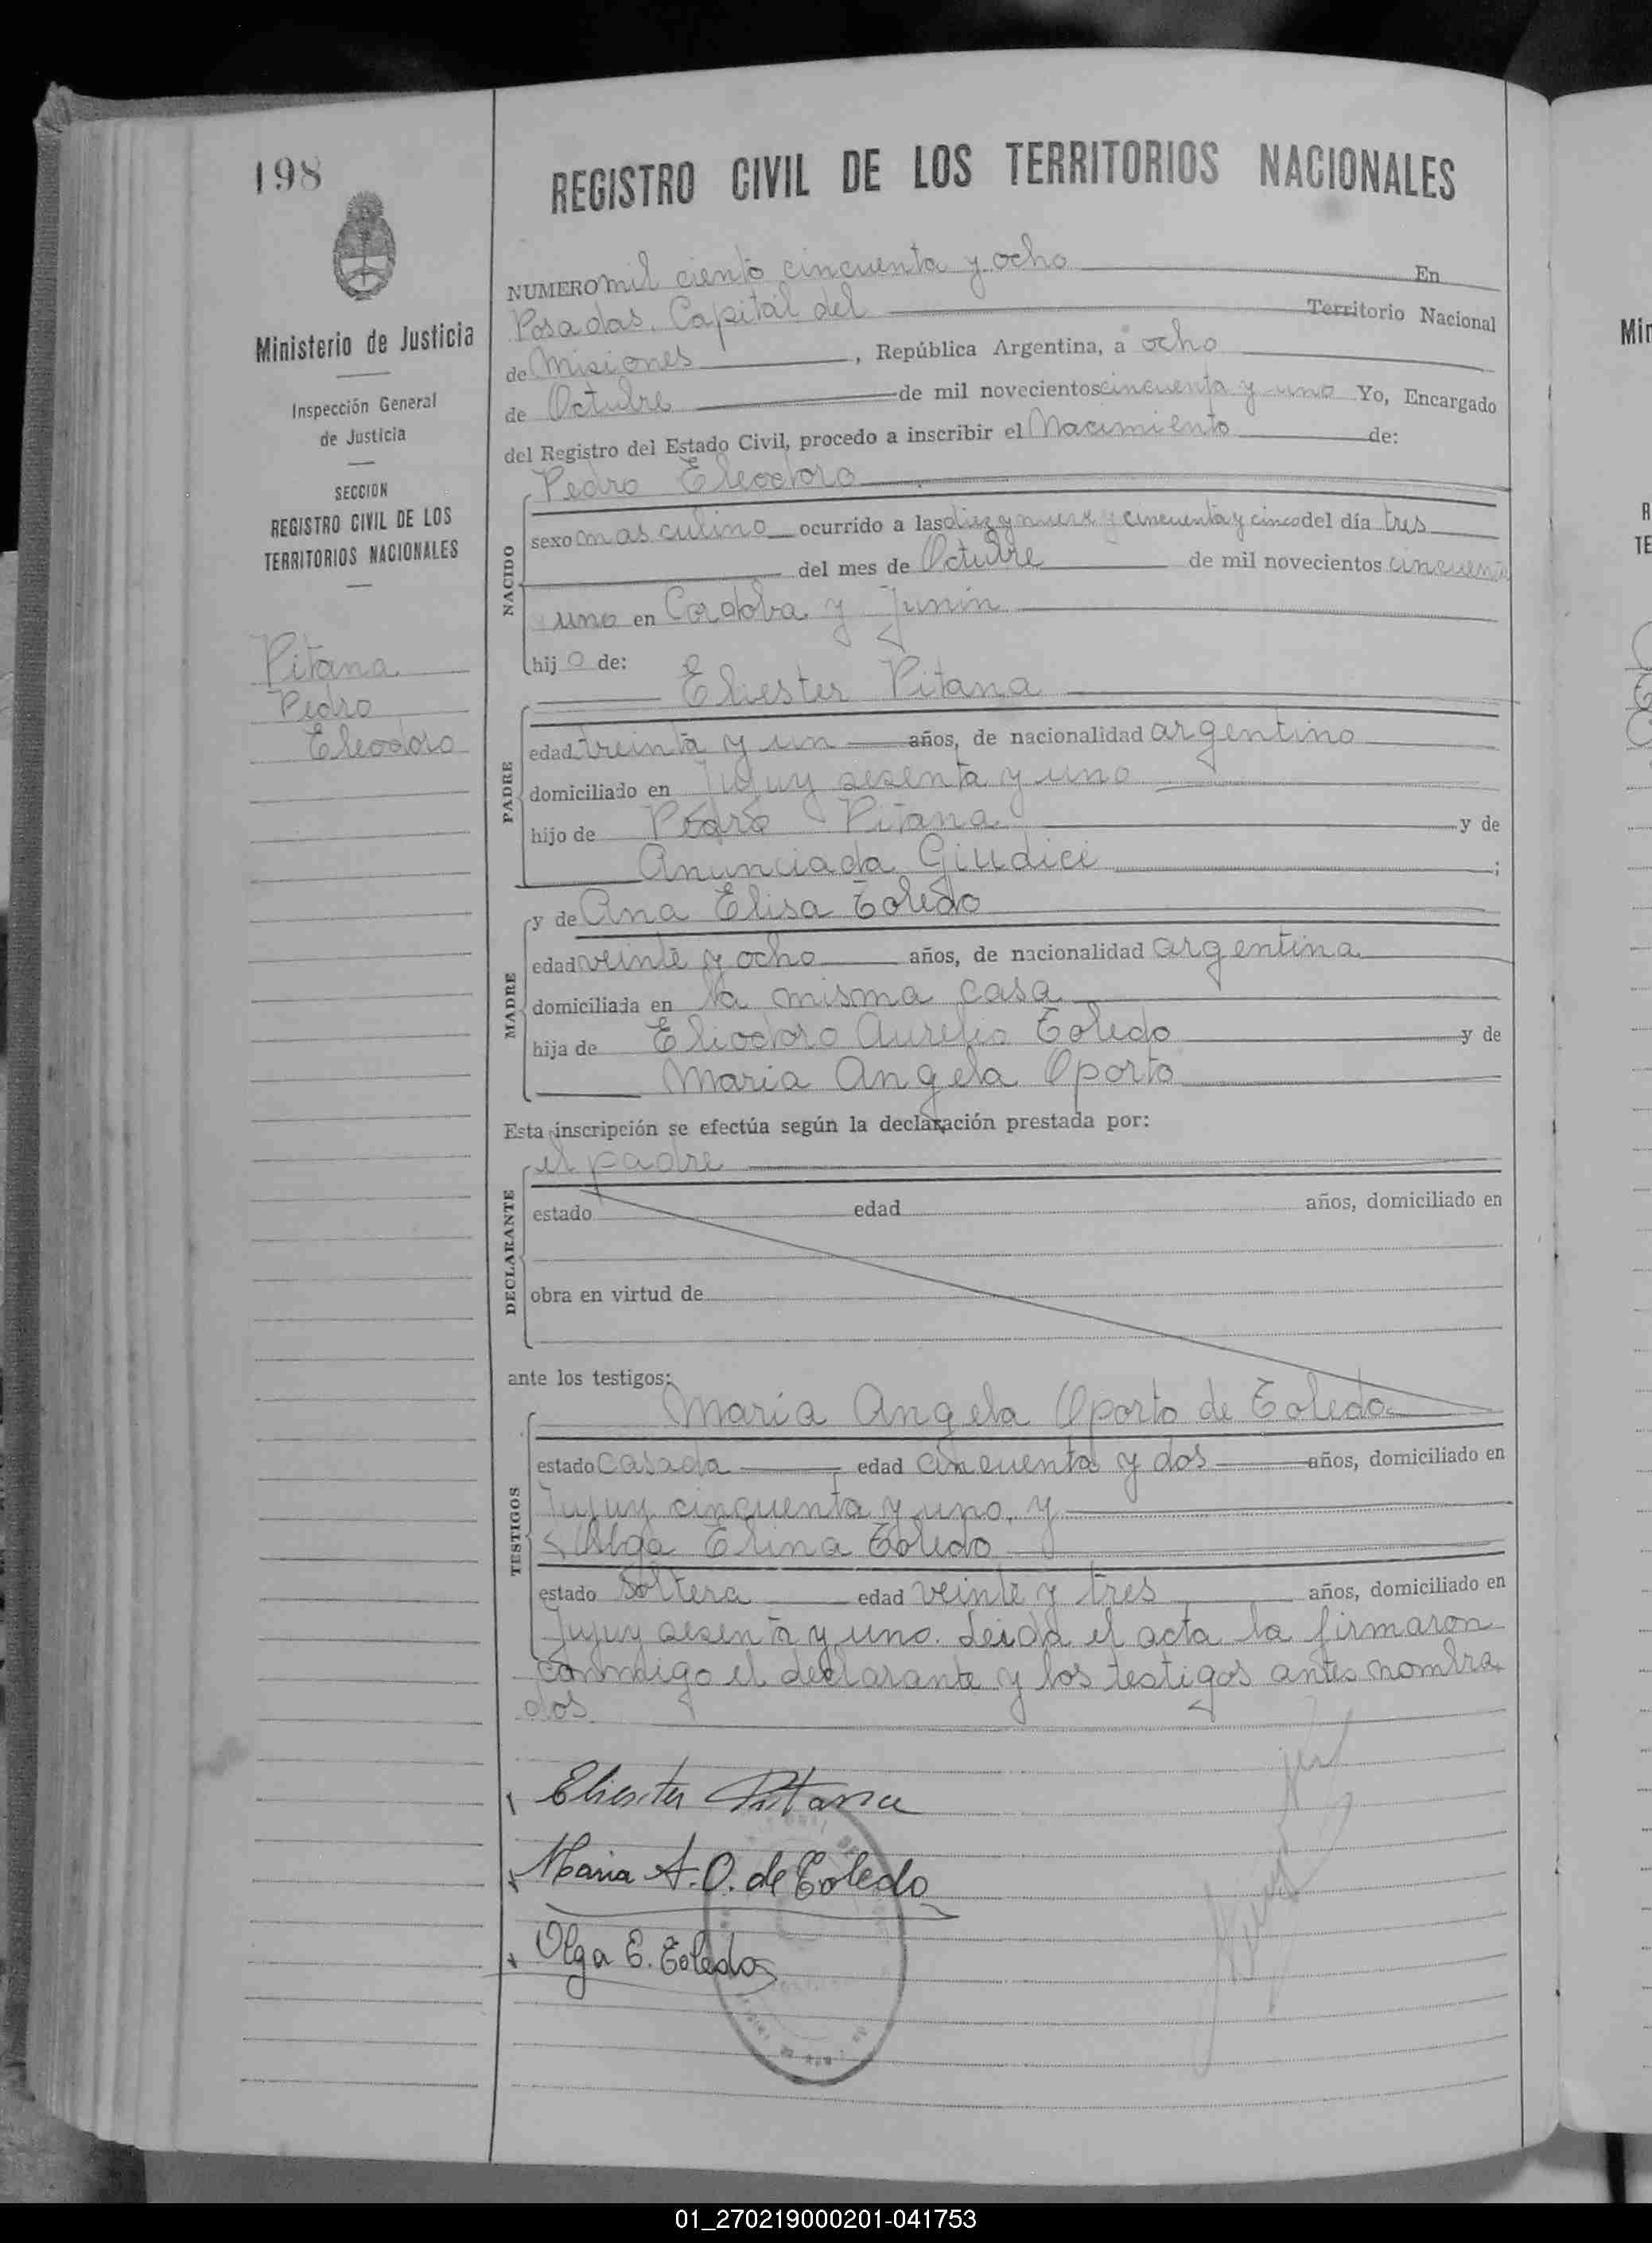 198
Ministerio de Justicia
Inspección General
de Justicia
SECCION
REGISTRO CIVIL DE LOS
TERRITORIOS NACIONALES
Pitana
Pedro
Eleodoro
REGISTRO CIVIL DE LOS TERRITORIOS NACIONALES
NUMERO mil ciento cincuenta y ocho En
Posadas, Capital del Territorio Nacional
de Misiones, República Argentina, a ocho
de Octubre de mil novecientos cincuenta y uno Yo, Encargado
del Registro del Estado Civil, procedo a inscribir el Nacimiento de:
Pedro Eleodoro
NACIDO
sexo masculino ocurrido a las diez y nueve y cincuenta y cinco del día tres
del mes de Octubre de mil novecientos cincuenta
uno en Cordoba y Junin
hijo de:
Eliester Pitana
PADRE
edad treinta y un años, de nacionalidad argentino
domiciliado en Jujuy sesenta y uno
hijo de Pedro Pitana y de
Anunciada Giudici ;
y de Ana Elisa Toledo
MADRE
edad veinte y ocho años, de nacionalidad argentina
domiciliada en la misma casa
hija de Eliodoro Aurelio Toledo y de
Maria Angela Oporto
Esta inscripción se efectúa según la declaración prestada por:
el padre
DECLARANTE
estado edad años, domiciliado en
obra en virtud de
ante los testigos:
Maria Angela Oporto de Toledo
TESTIGOS
estado casada edad cincuenta y dos años, domiciliado en
Jujuy cincuenta y uno, y
Olga Elina Toledo
estado soltera edad veinte y tres años, domiciliado en
Jujuy sesenta y uno. Leida el acta la firmaron
conmigo el declarante y los testigos antes nombra
dos
Eliester Pitana
Maria A. O. de Toledo
Olga E. Toledo
Min
R
TE
01_270219000201-041753